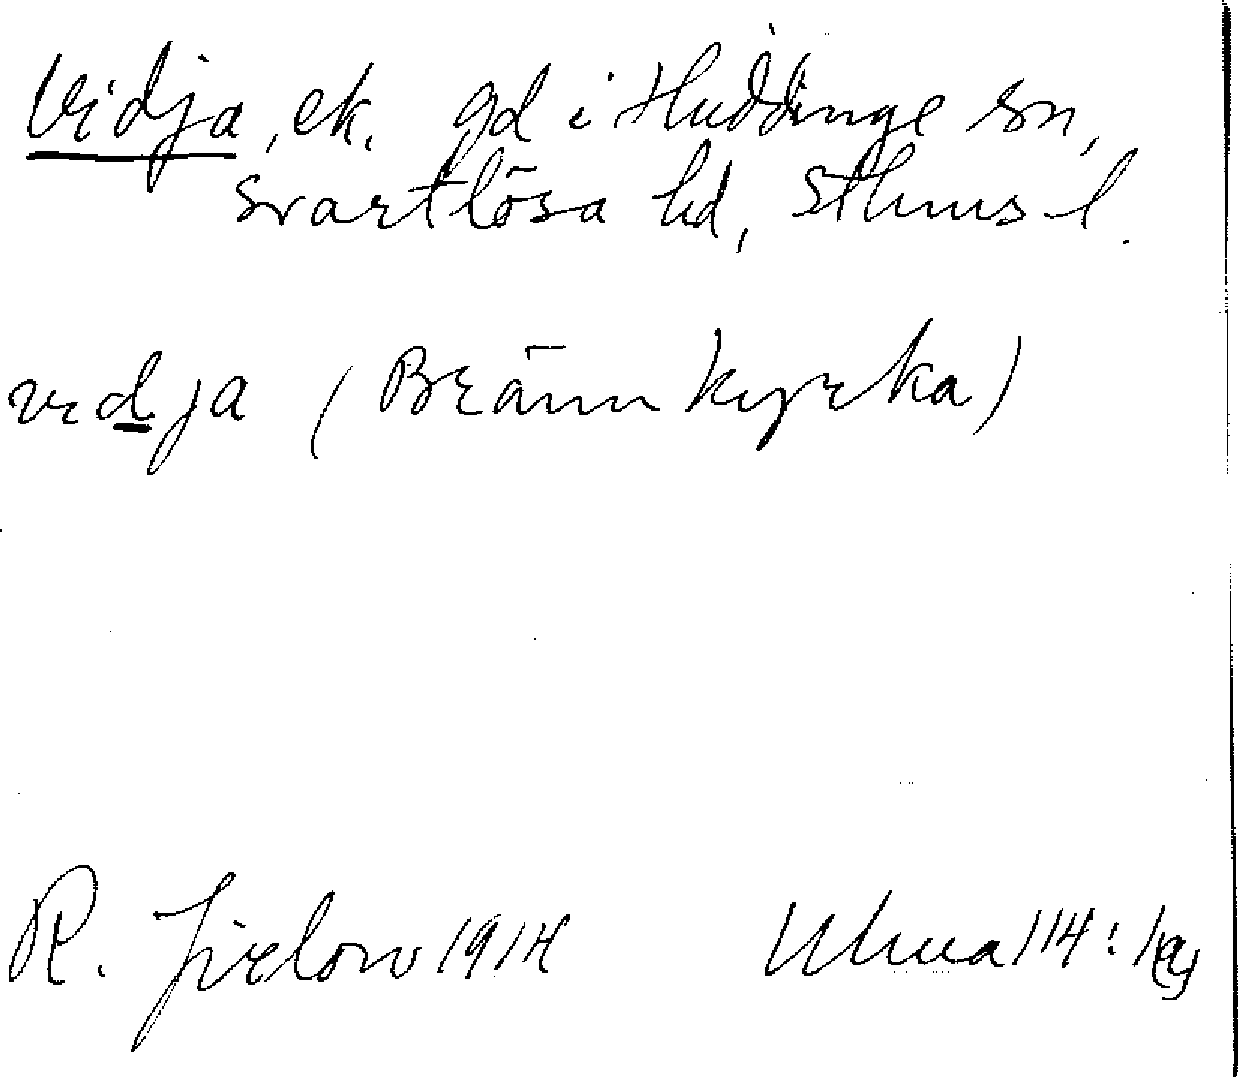 Vidja, ek. gd i Huddinge sn,
Svartlösa hd, Sthms l.
vedja (Brännkyrka)
R. Jirlow 1914 Ulma 114: